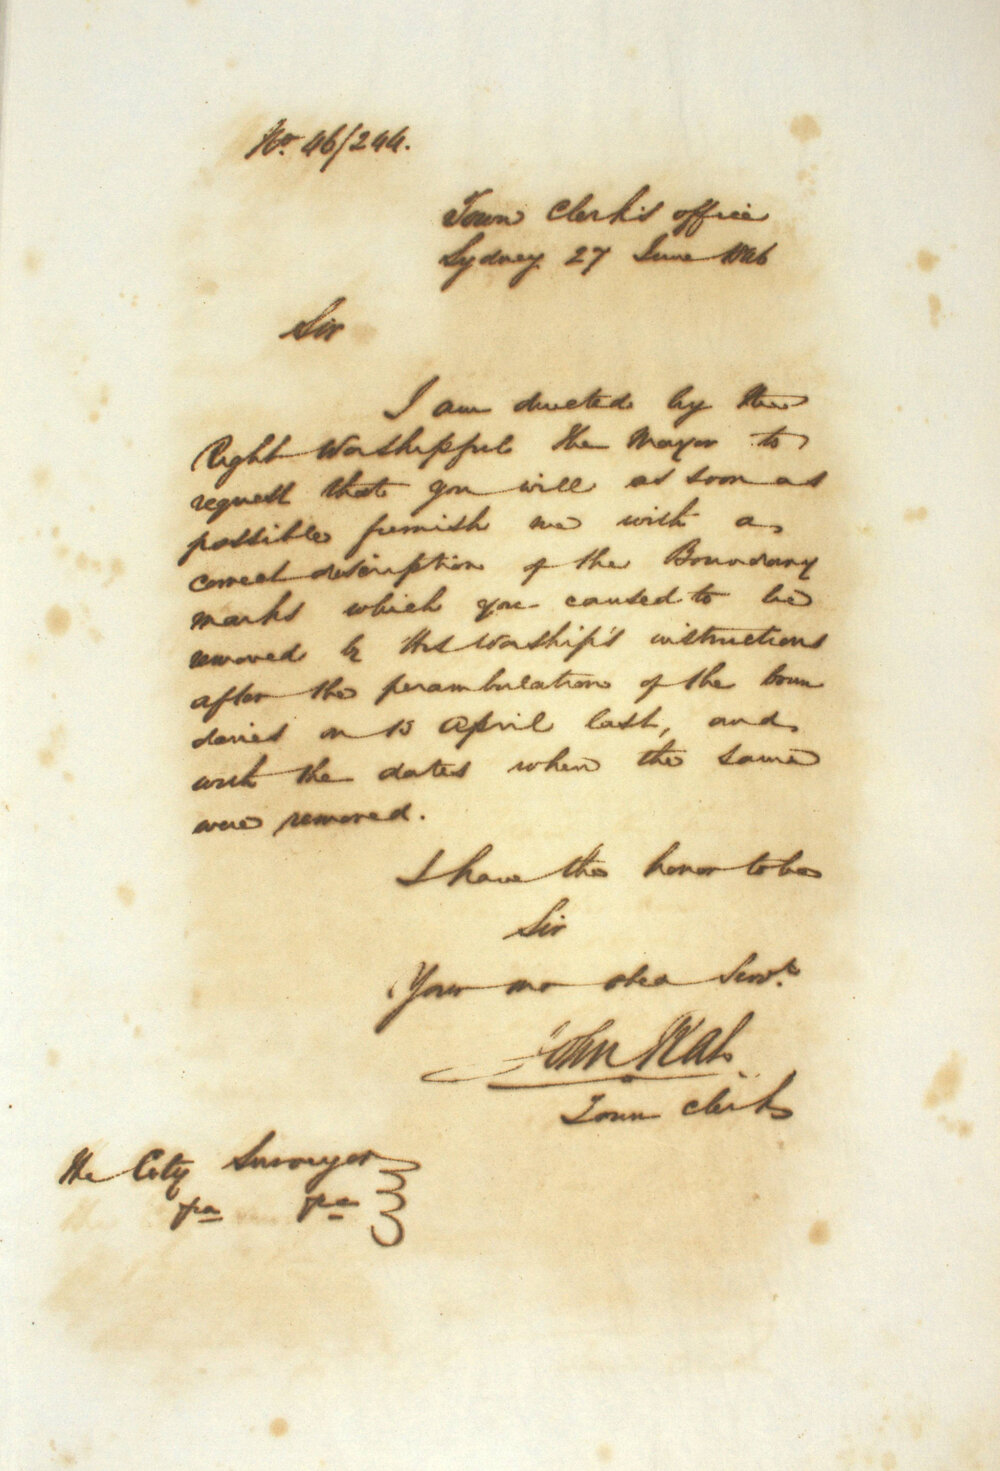 No. 46/244.
Town Clerk's office
Sydney 27 June 1846
Sir
I am directed by the
Right Worshipful the Mayor to
request that you will as soon as
possible furnish me with a
correct description of the Boundary
marks which you caused to be
removed by His Worship's instructions
after the perambulation of the boun
daries on 13 April last, and
with the dates when the same
were removed.
I have the honor to be
Sir
Your mo obed Servt.
John
Town Clerk
The City Surveyor